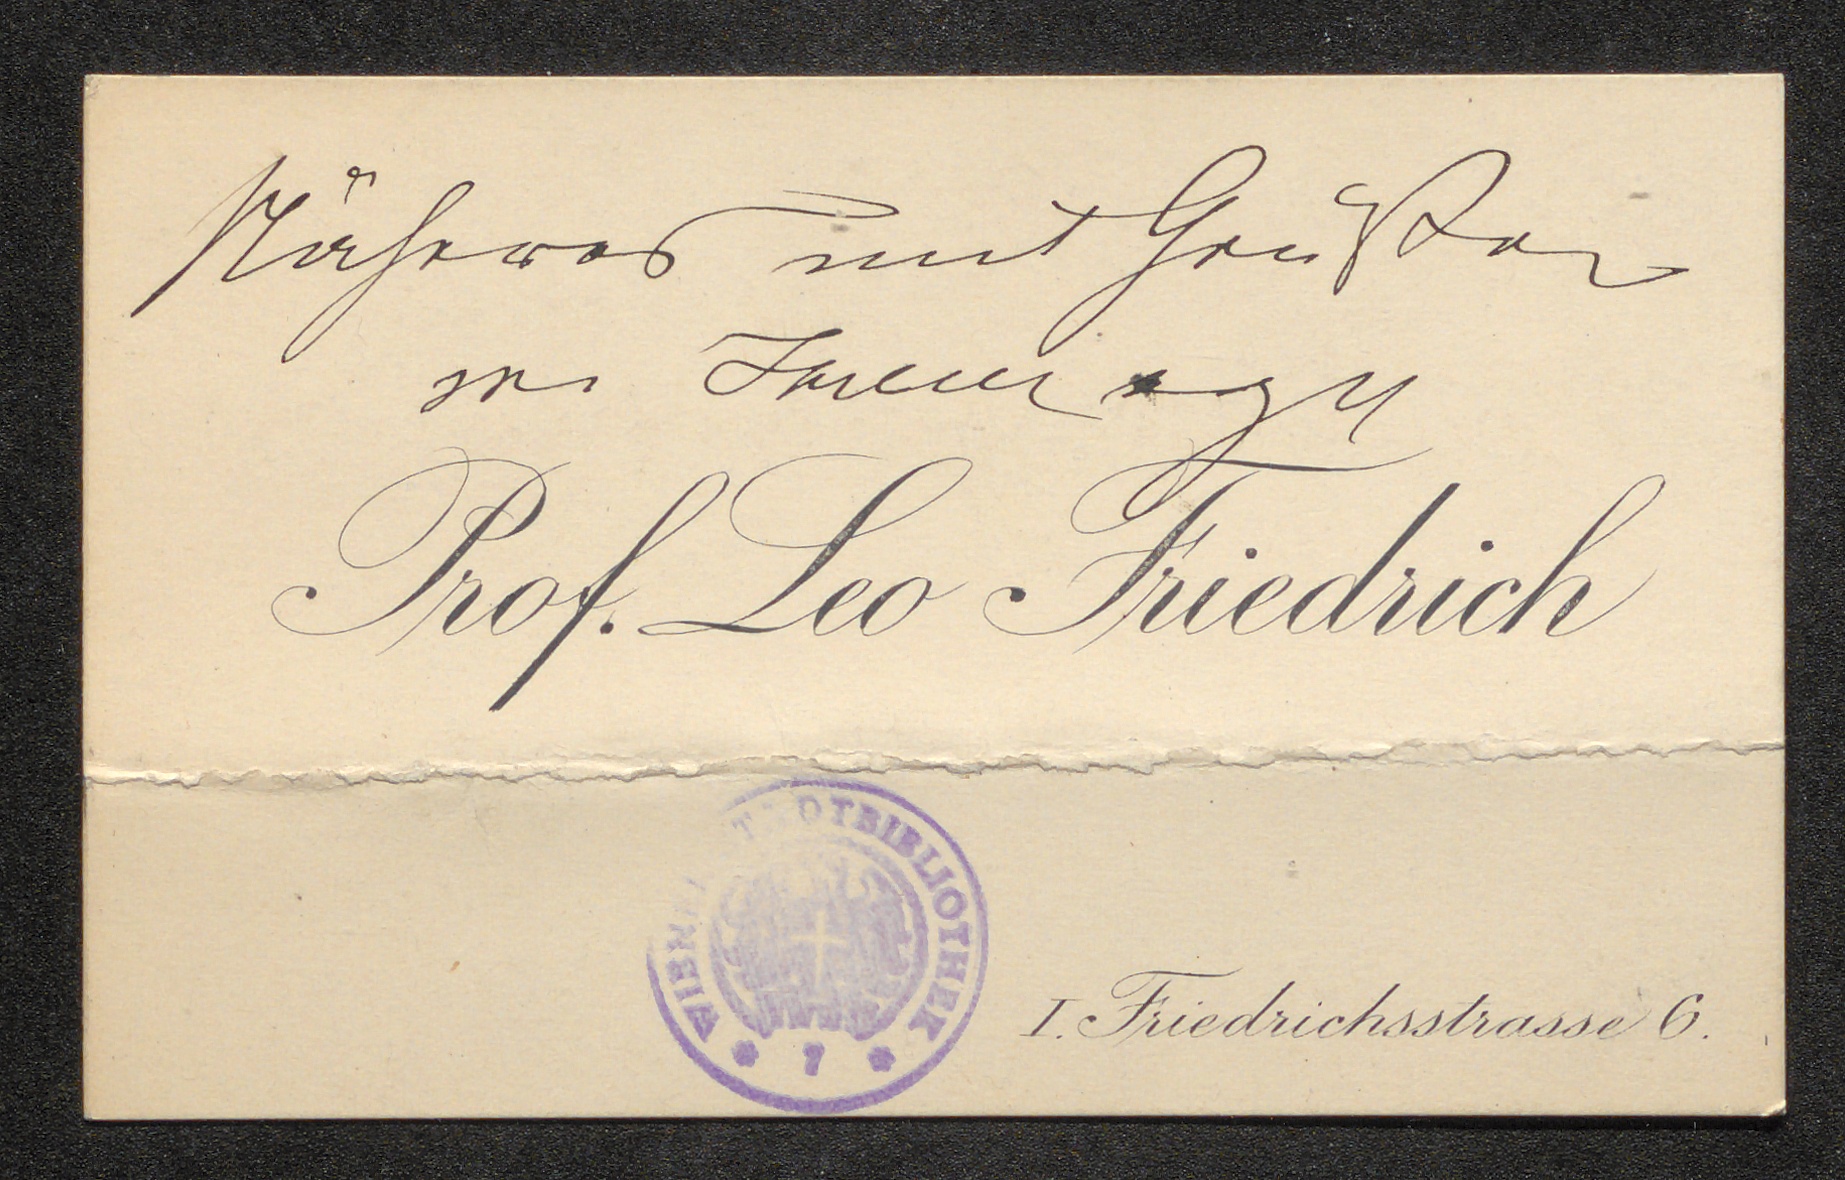 Näheres mit Grüßen
von Ihrem erg
Prof. Leo Friedrich
WIENER STADTBIBLIOTHEK
* 7 *
I. Friedrichsstrasse 6.